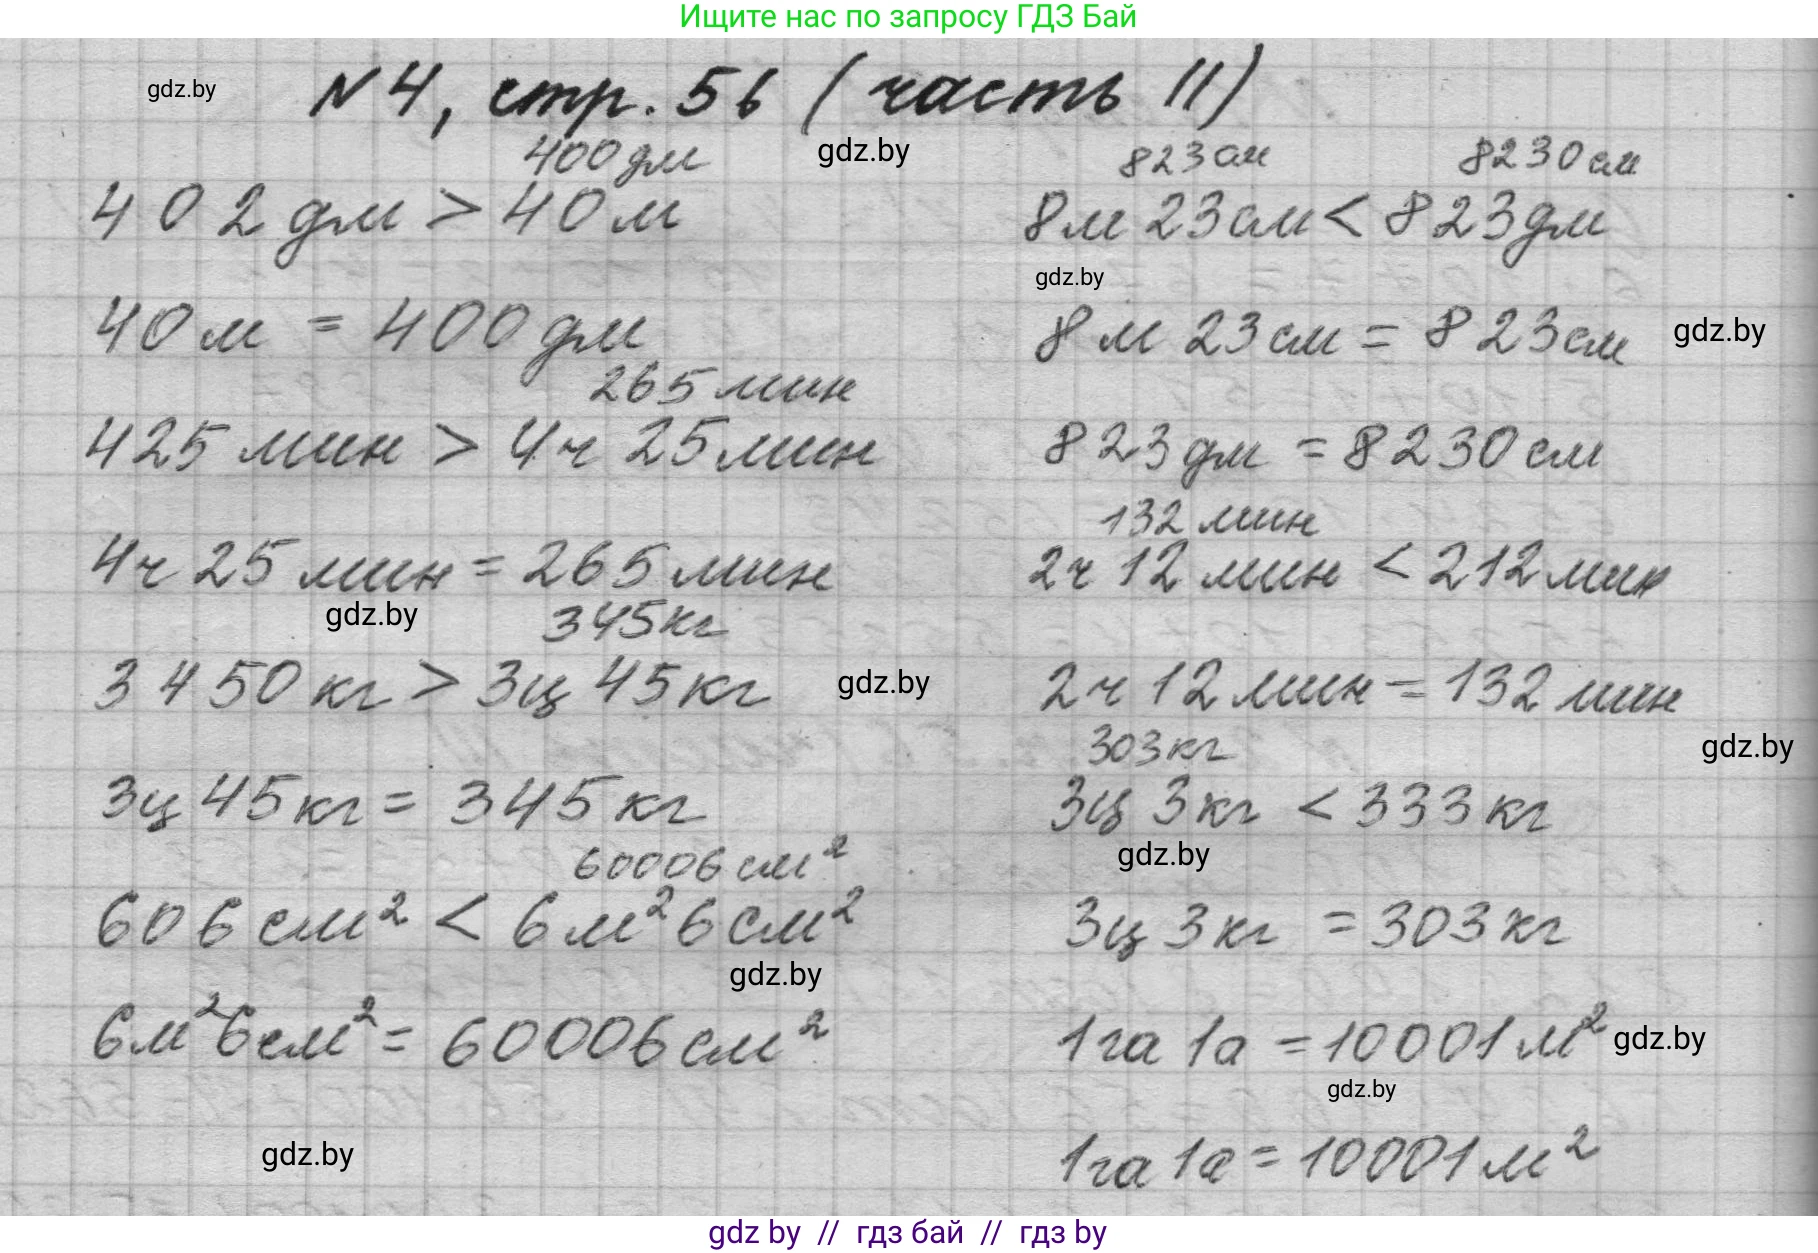 Ищите нас по запросу ГДЗ Бай
gdz.by
N 4, стр. 56 (часть II)
400 дм
gdz.by
402 дм > 40 м
40 м = 400 дм
265 мин
425 мин > 4ч 25 мин
4ч 25 мин = 265 мин
gdz.by
345 кг
3450 кг > 3ц 45 кг
gdz.by
3ц 45 кг = 345 кг
60006 см²
606 см² < 6 м² 6 см²
gdz.by
6 м² 6 см² = 60006 см²
gdz.by
823 см 8230 см
8 м 23 см < 823 дм
gdz.by
8 м 23 см = 823 см
gdz.by
823 дм = 8230 см
132 мин
2ч 12 мин < 212 мин
2ч 12 мин = 132 мин
303 кг
gdz.by
3ц 3 кг < 333 кг
gdz.by
3ц 3 кг = 303 кг
1 га 1а = 10001 м²
gdz.by
gdz.by
1 га 1а = 10001 м²
gdz by // гдз бай // гдз by